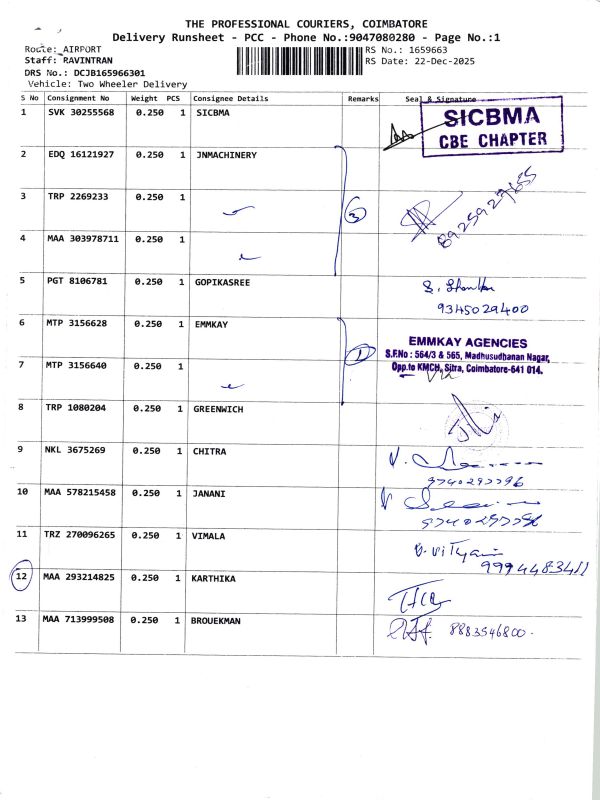 THE PROFESSIONAL COURIERS, COIMBATORE
Delivery Runsheet - PCC - Phone No.:9047080280 - Page No.:1
Route: AIRPORT
RS No.: 1659663
Staff: RAVINTRAN
RS Date: 22-Dec-2025
DRS No.: DCJB165966301
Vehicle: Two Wheeler Delivery
S No Consignment No Weight PCS Consignee Details Remarks Seal & Signature
1 SVK 30255568 0.250 1 SICBMA
SICBMA
CBE CHAPTER
2 EDQ 16121927 0.250 1 JNMACHINERY
3 TRP 2269233 0.250 1
3
8925927655
4 MAA 303978711 0.250 1
5 PGT 8106781 0.250 1 GOPIKASREE
9345029400
6 MTP 3156628 0.250 1 EMMKAY
1
EMMKAY AGENCIES
S.F.No : 564/3 & 565, Madhusudhanan Nagar,
Opp.to KMCH, Sitra, Coimbatore-641 014.
7 MTP 3156640 0.250 1
8 TRP 1080204 0.250 1 GREENWICH
9 NKL 3675269 0.250 1 CHITRA
9740293396
10 MAA 578215458 0.250 1 JANANI
9740293396
11 TRZ 270096265 0.250 1 VIMALA
9994483411
12 MAA 293214825 0.250 1 KARTHIKA
13 MAA 713999508 0.250 1 BROUEKMAN
8883546800.